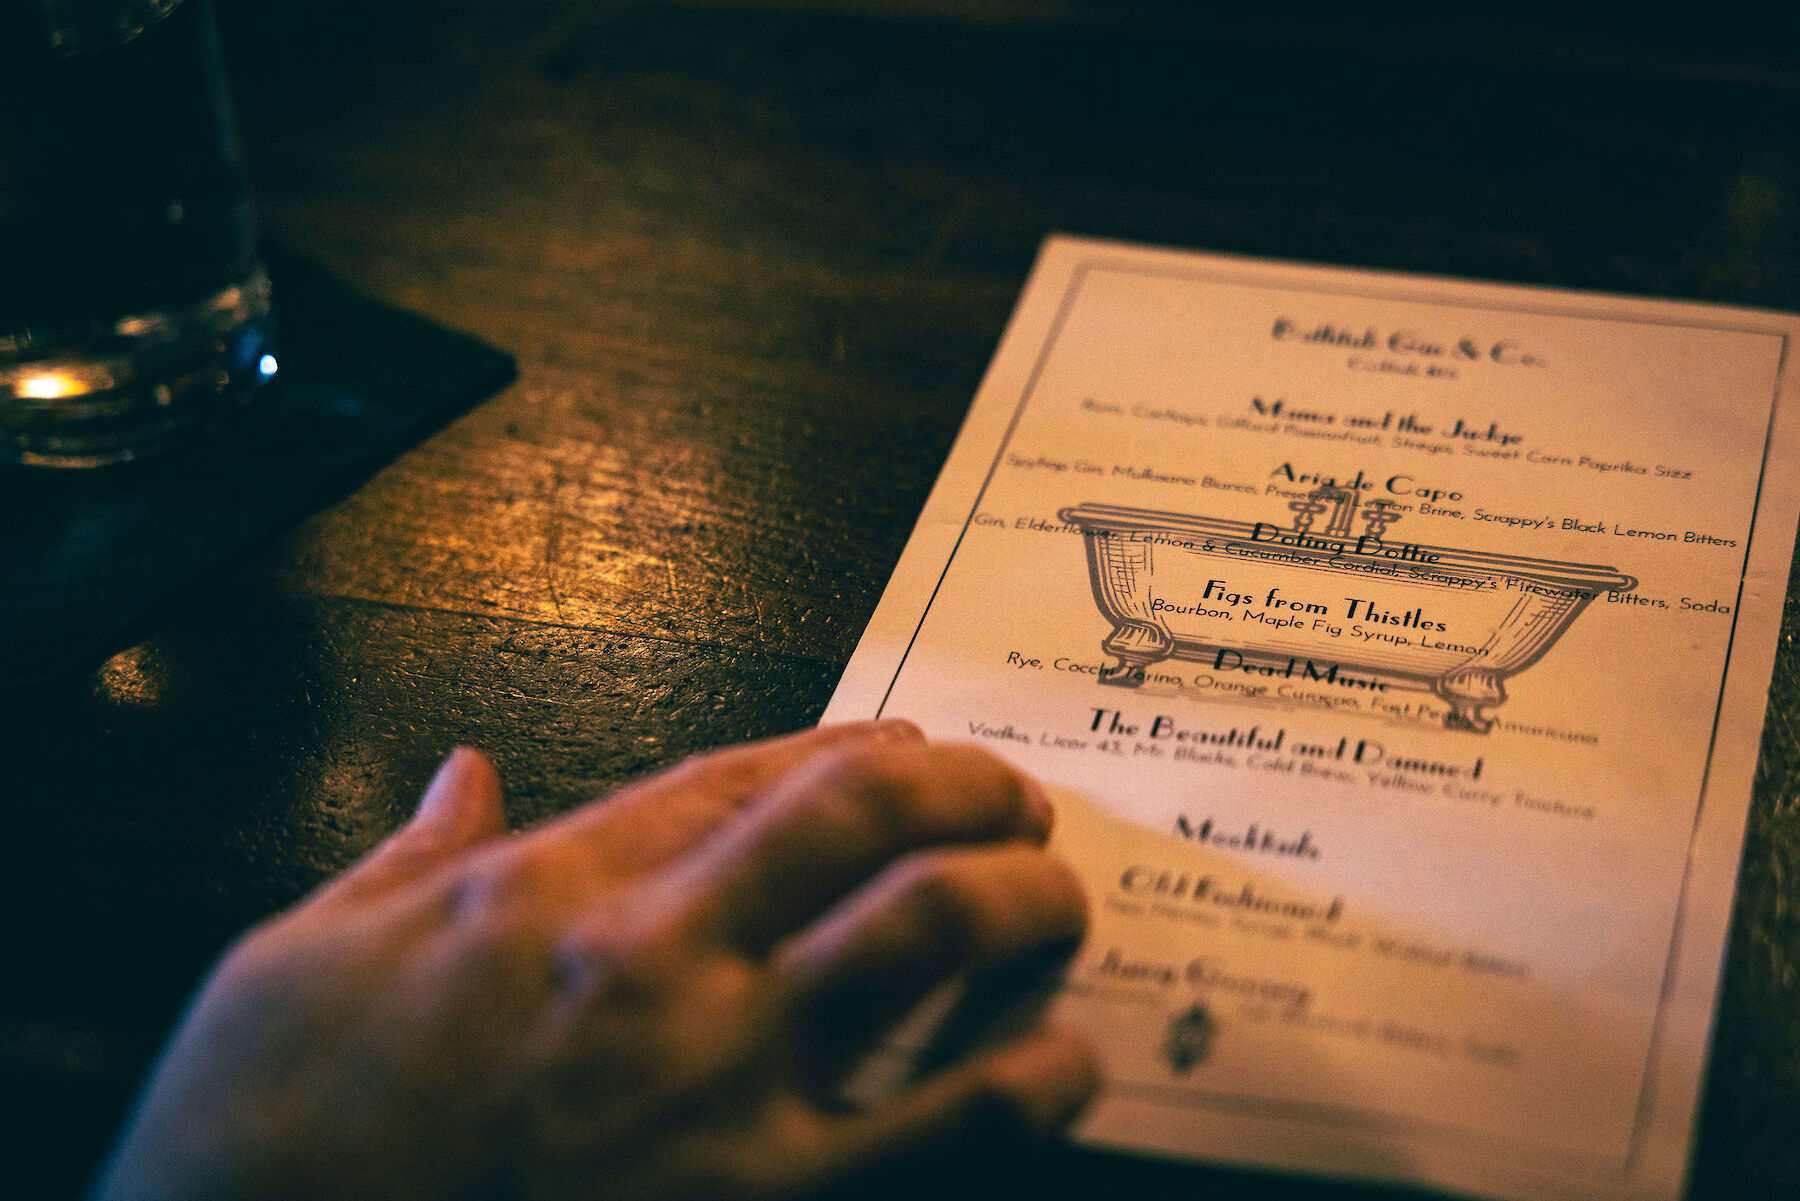 Bathtub Gin & Co.
Mama and the Judge
Rum, Cachaça, Giffard Passionfruit, Strega, Sweet Corn Paprika Sizz
Aria de Capo
Spyhop Gin, Mulassano Bianco, Preserved Lemon Brine, Scrappy's Black Lemon Bitters
Doting Dottie
Gin, Elderflower, Lemon & Cucumber Cordial, Scrappy's Firewater Bitters, Soda
Figs from Thistles
Bourbon, Maple Fig Syrup, Lemon
Dead Music
Rye, Cocchi Torino, Orange Curaçao, Fast Penny Amaricano
The Beautiful and Damned
Vodka, Licor 43, Mr. Blacks, Cold Brew, Yellow Curry Tincture
Mocktails
Old Fashioned